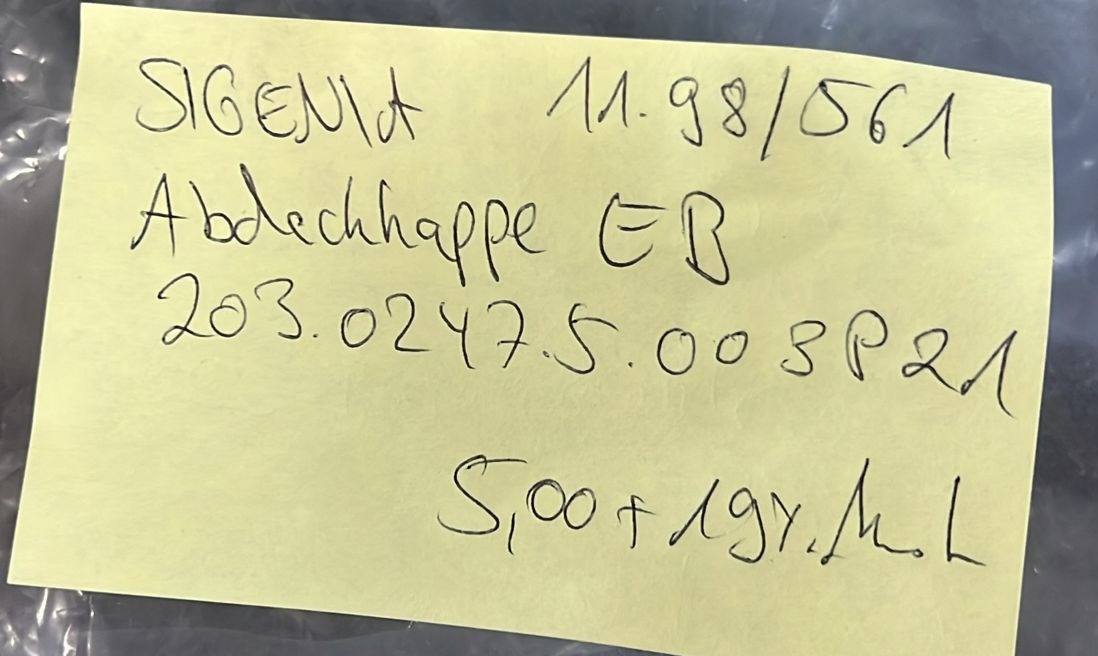 SIGENIA 11.98/561
Abdeckkappe EB
203.0247.5.003P21
5,00 + 19%